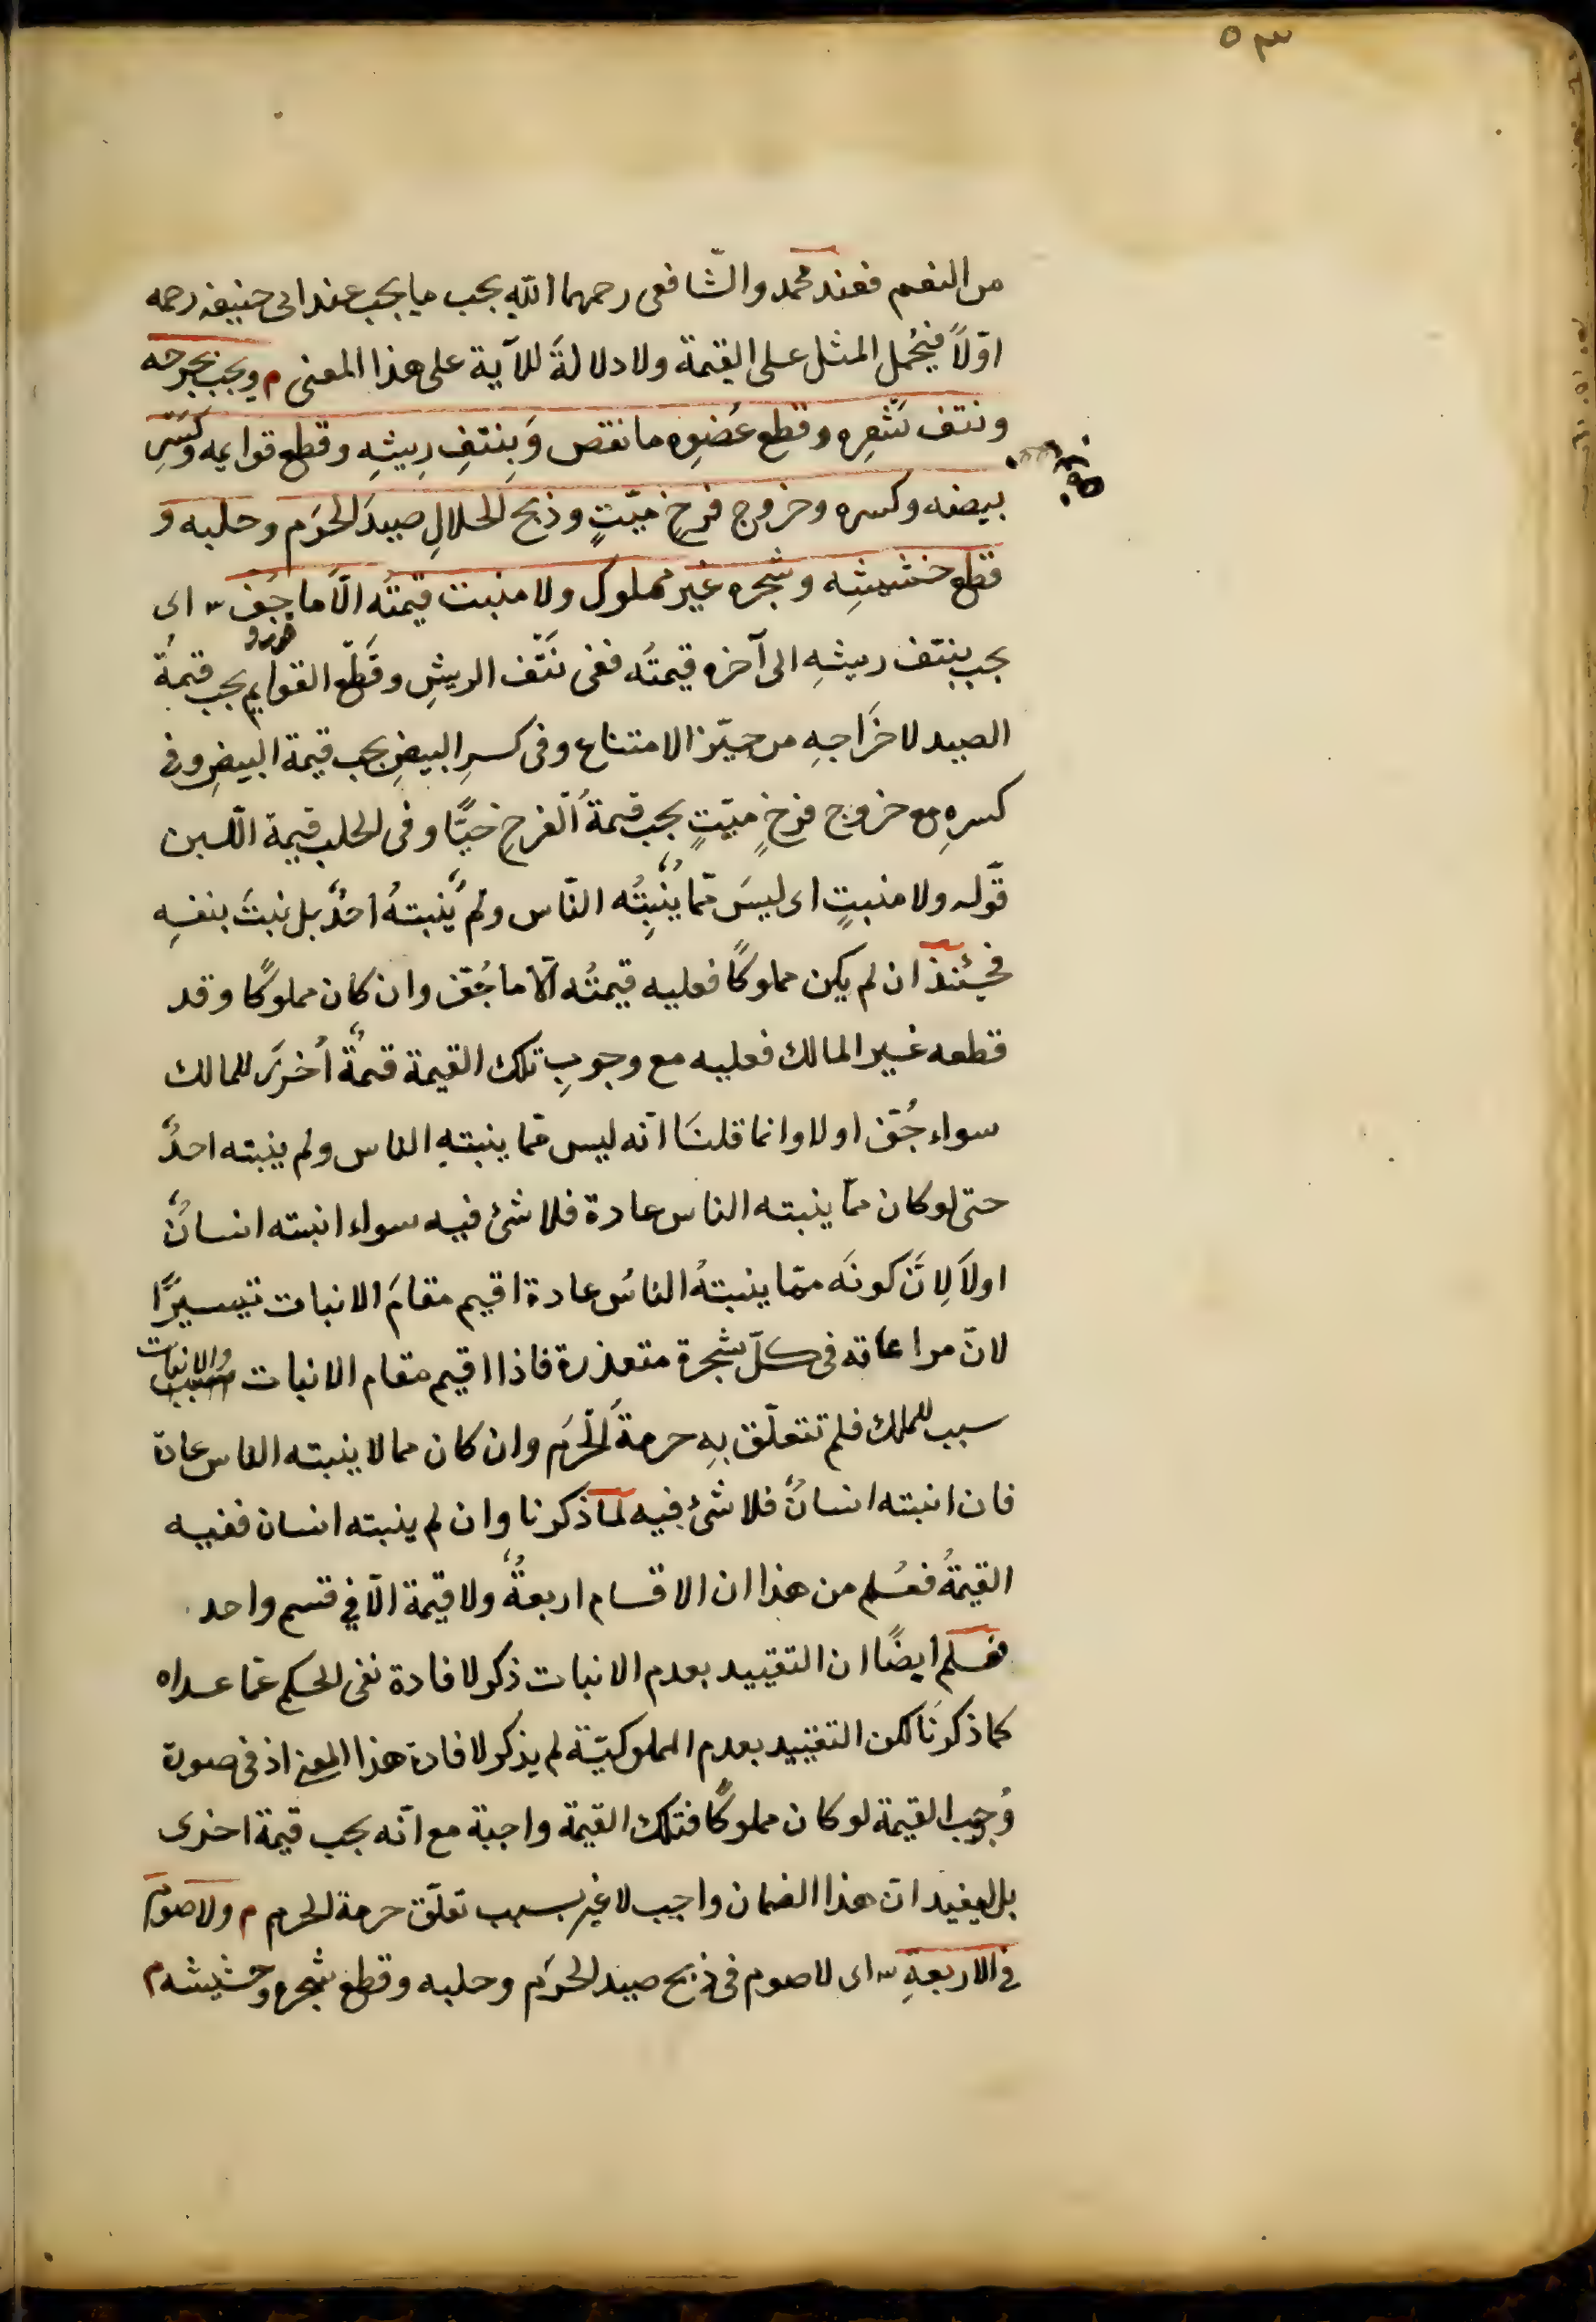 ٥٣
من النعم فعند محمد والشّافعى رحمهما اللّه يجب ما يجب عند ابى حنيفة رحمه
اوّلاً فيُحمل المثل على القيمة ولا دلالةَ للآية على هذا المعنى م ويجب بجرحه
ونتف شَعرِه وقطع عُضوِه ما نقص وَبِنتفِ رِيشِهِ وقطع قوايمه وكَسْرِ
بيضه وكسره وخروج فرخٍ ميّتٍ وذبح الحلالِ صيدَ الحَرَم وحلبه و
قطع حشيشِه وشجره غير مملوك ولا منبت قيمتُه الّا ما جَفّ س اى
يجب بنتف ريشهِ الى آخره قيمتُه ففى نَتْف الريشِ وقَطْع القوايم يجب قيمةُ
الصيد لاخرَاجهِ من حيّز الامتناع وفى كسرِ البيضِ يجب قيمة البيضِ وفى
كسرهِ مع خروج فرخٍ ميّتٍ يجب قيمةُ الفرخِ حيًّا وفى الحلب قيمة اللّبن
قوله ولا منبتٍ اى ليسَ ممّا يُنْبِتُه النّاس ولم يُنبتهُ احدٌ بل نبتَ بنفسِهِ
فحينئذ ان لم يكن مملوكًا فعليه قيمتُه الّا ما جُفّ وان كان مملوكًا وقد
قطعه غير المالك فعليه مع وجوبِ تلك القيمة قيمةٌ أخرَى للمالك
سواء جُفّ او لا وانما قلنَا انّه ليس ممّا ينبته الناس ولم ينبته احدٌ
حتى لو كان ممّا ينبته الناس عادة فلا شئ فيه سواء انبته انسانٌ
اولاَ لِانّ كونَه ممّا ينبتهُ الناسُ عادة اقيم مقامَ الانبات تيسيرًا
لانّ مراعاته فى كلّ شجرة متعذرة فاذا اقيم مقام الانبات والانبات
سبب للملك فلم تتعلّق بهِ حرمةُ الحَرَم وان كان مما لا ينبته الناس عادة
فان انبته انسانٌ فلا شئ فيه لما ذكرنا وان لم ينبته انسان ففيه
القيمةُ فعُلم من هذا ان الاقسام اربعةٌ ولا قيمة الّا فى قسم واحد
فعلم ايضًا ان التقييد بعدم الانبات ذكر لافادة نفى الحكم عمّا عداه
كما ذكرنَا لكن التقييد بعدم المملوكيّة لم يذكر لافادة هذا المعنى اذ فى صورة
وُجوب القيمة لو كان مملوكًا فتلك القيمة واجبة مع انّه يجب قيمة اخرى
بل ليفيد انّ هذا الضمان واجب لا غير بسبب تعلّق حرمة الحرم م ولا صوم
فى الاربعةِ س اى لا صوم فى ذبح صيد الحَرَم وحلبه وقطع شجره وحشيشه م